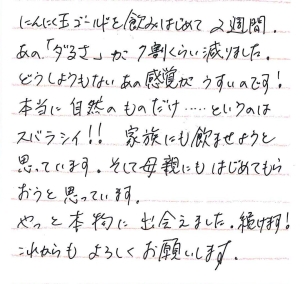 にんにく玉ゴールドを飲みはじめて2週間.
あの「ダるさ」が7割くらい減りました.
どうしようもないあの感覚がうすいのです!
本当に自然のものだけ……というのは
スバラシイ!! 家族にも飲ませようと
思っています. そして母親にもはじめてもら
おうと思っています.
やっと本物に出会えました. 続けます!
これからもよろしくお願いします.